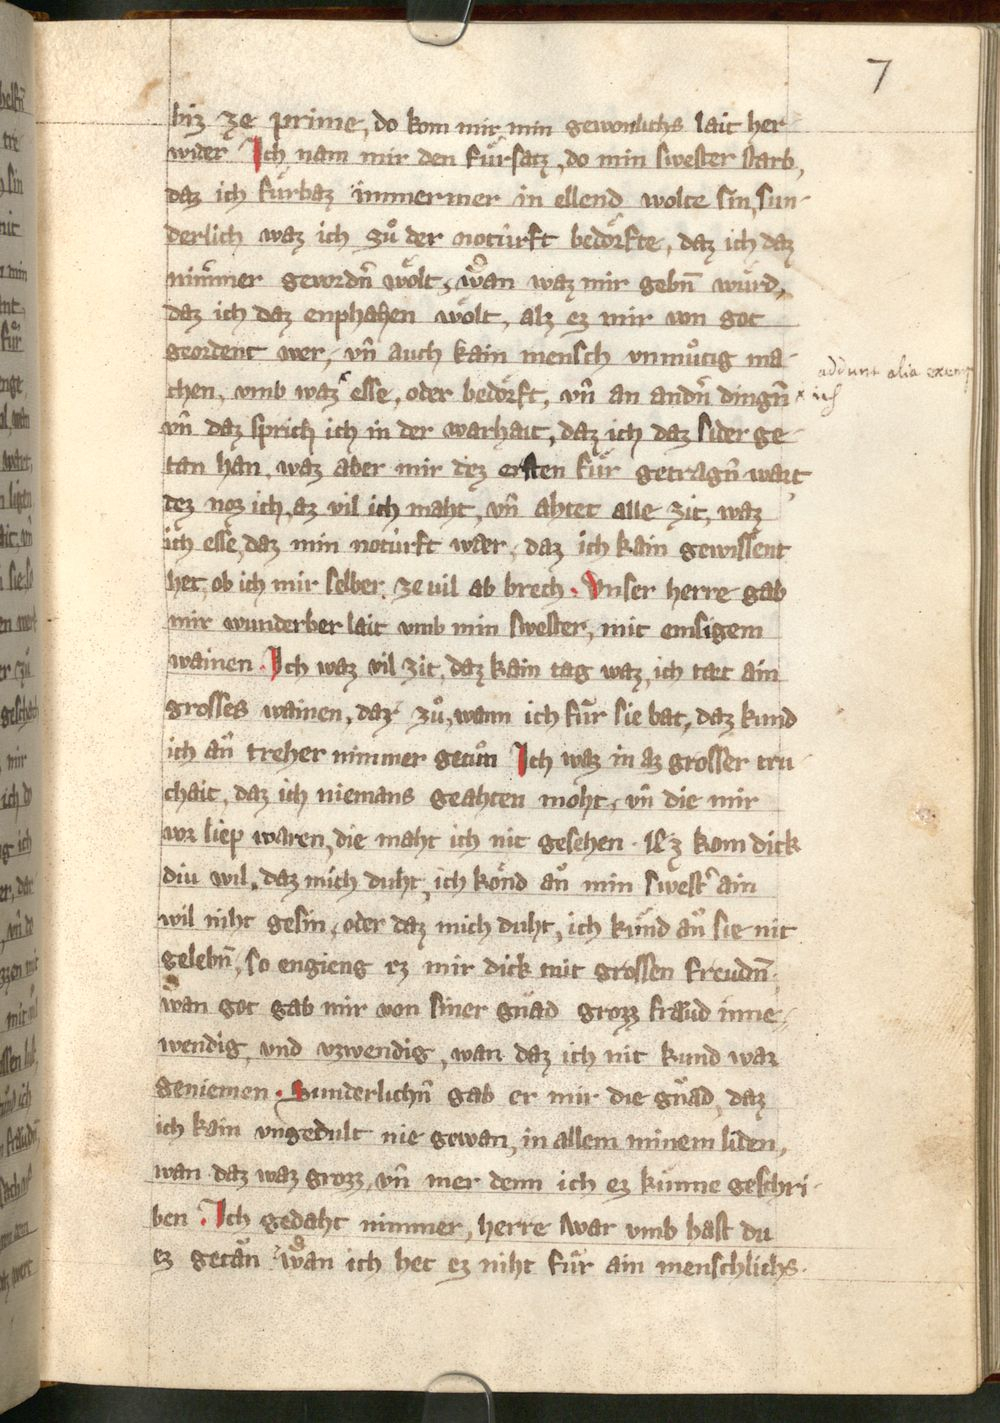 7
biz ze prime, do kom mir min gewonlichs lait her
wider Ich nam mir den fúrsatz, do min swester starb,
daz ich fúrbaz immermer in ellend wolte sin, sun-
derlich waz ich zů der noturft bedörfte, daz ich daz
nimmer gevordñ wölt, wan waz mir gebñ wurd,
daz ich daz enphahen wölt, alz ez mir von got
geordent wer, vñ auch kain mensch vnmůtig ma-
chen, vmb waz esse, oder bedörft, vñ an andñ dingñ
addunt alia exemp
ich
vñ daz sprich ich in der warhait, daz ich daz sider ge-
tan han, waz aber mir dez ersten fúr getragñ wart,
dez noz ich, az vil ich maht, vñ ahtet alle zit, waz
ich esse, daz min noturft wær, daz ich kain gewissent
het, ob ich mir selber ze vil ab brech. Vnser herre gab
mir wunderber lait vmb min swester, mit emsigem
wainen. Ich waz vil zit, daz kain tag waz, ich tæt ain
grosses wainen, daz zů, wann ich fúr sie bat, daz kund
ich an treher nimmer getůn Ich waz in az grosser tru-
chait, daz ich niemans geahten möht, vñ die mir
vor liep waren, die maht ich nit gesehen. Ez kom dick
diu wil, daz mich duht, ich könd an min swest͛ ain
wil niht gesin, oder daz mich duht, ich kúnd an sie nit
gelebñ, so engieng ez mir dick mit grossen freudñ,
wan got gab mir von siner gnad grozz fräud inne-
wendig, vnd vzwendig, wan daz ich nit kund war
geniemen. Sunderlichñ gab er mir die gnad, daz
ich kain vngedult nie gewan, in allem minem liden,
wan daz waz grozz, vñ mer denn ich ez kúnne geschri-
ben. Ich gedaht nimmer, herre war vmb hast du
ez getan wan ich het ez niht fúr ain menschlichs